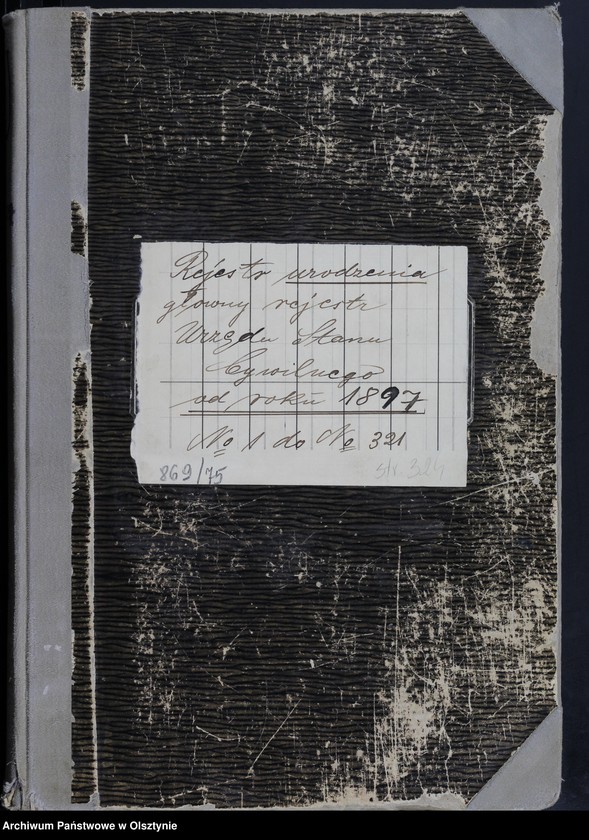 Rejestr urodzenia
główny rejestr
Urzędu Stanu
Cywilnego
od roku 1897
No 1 do No 321
869/75
str. 324
Archiwum Państwowe w Olsztynie